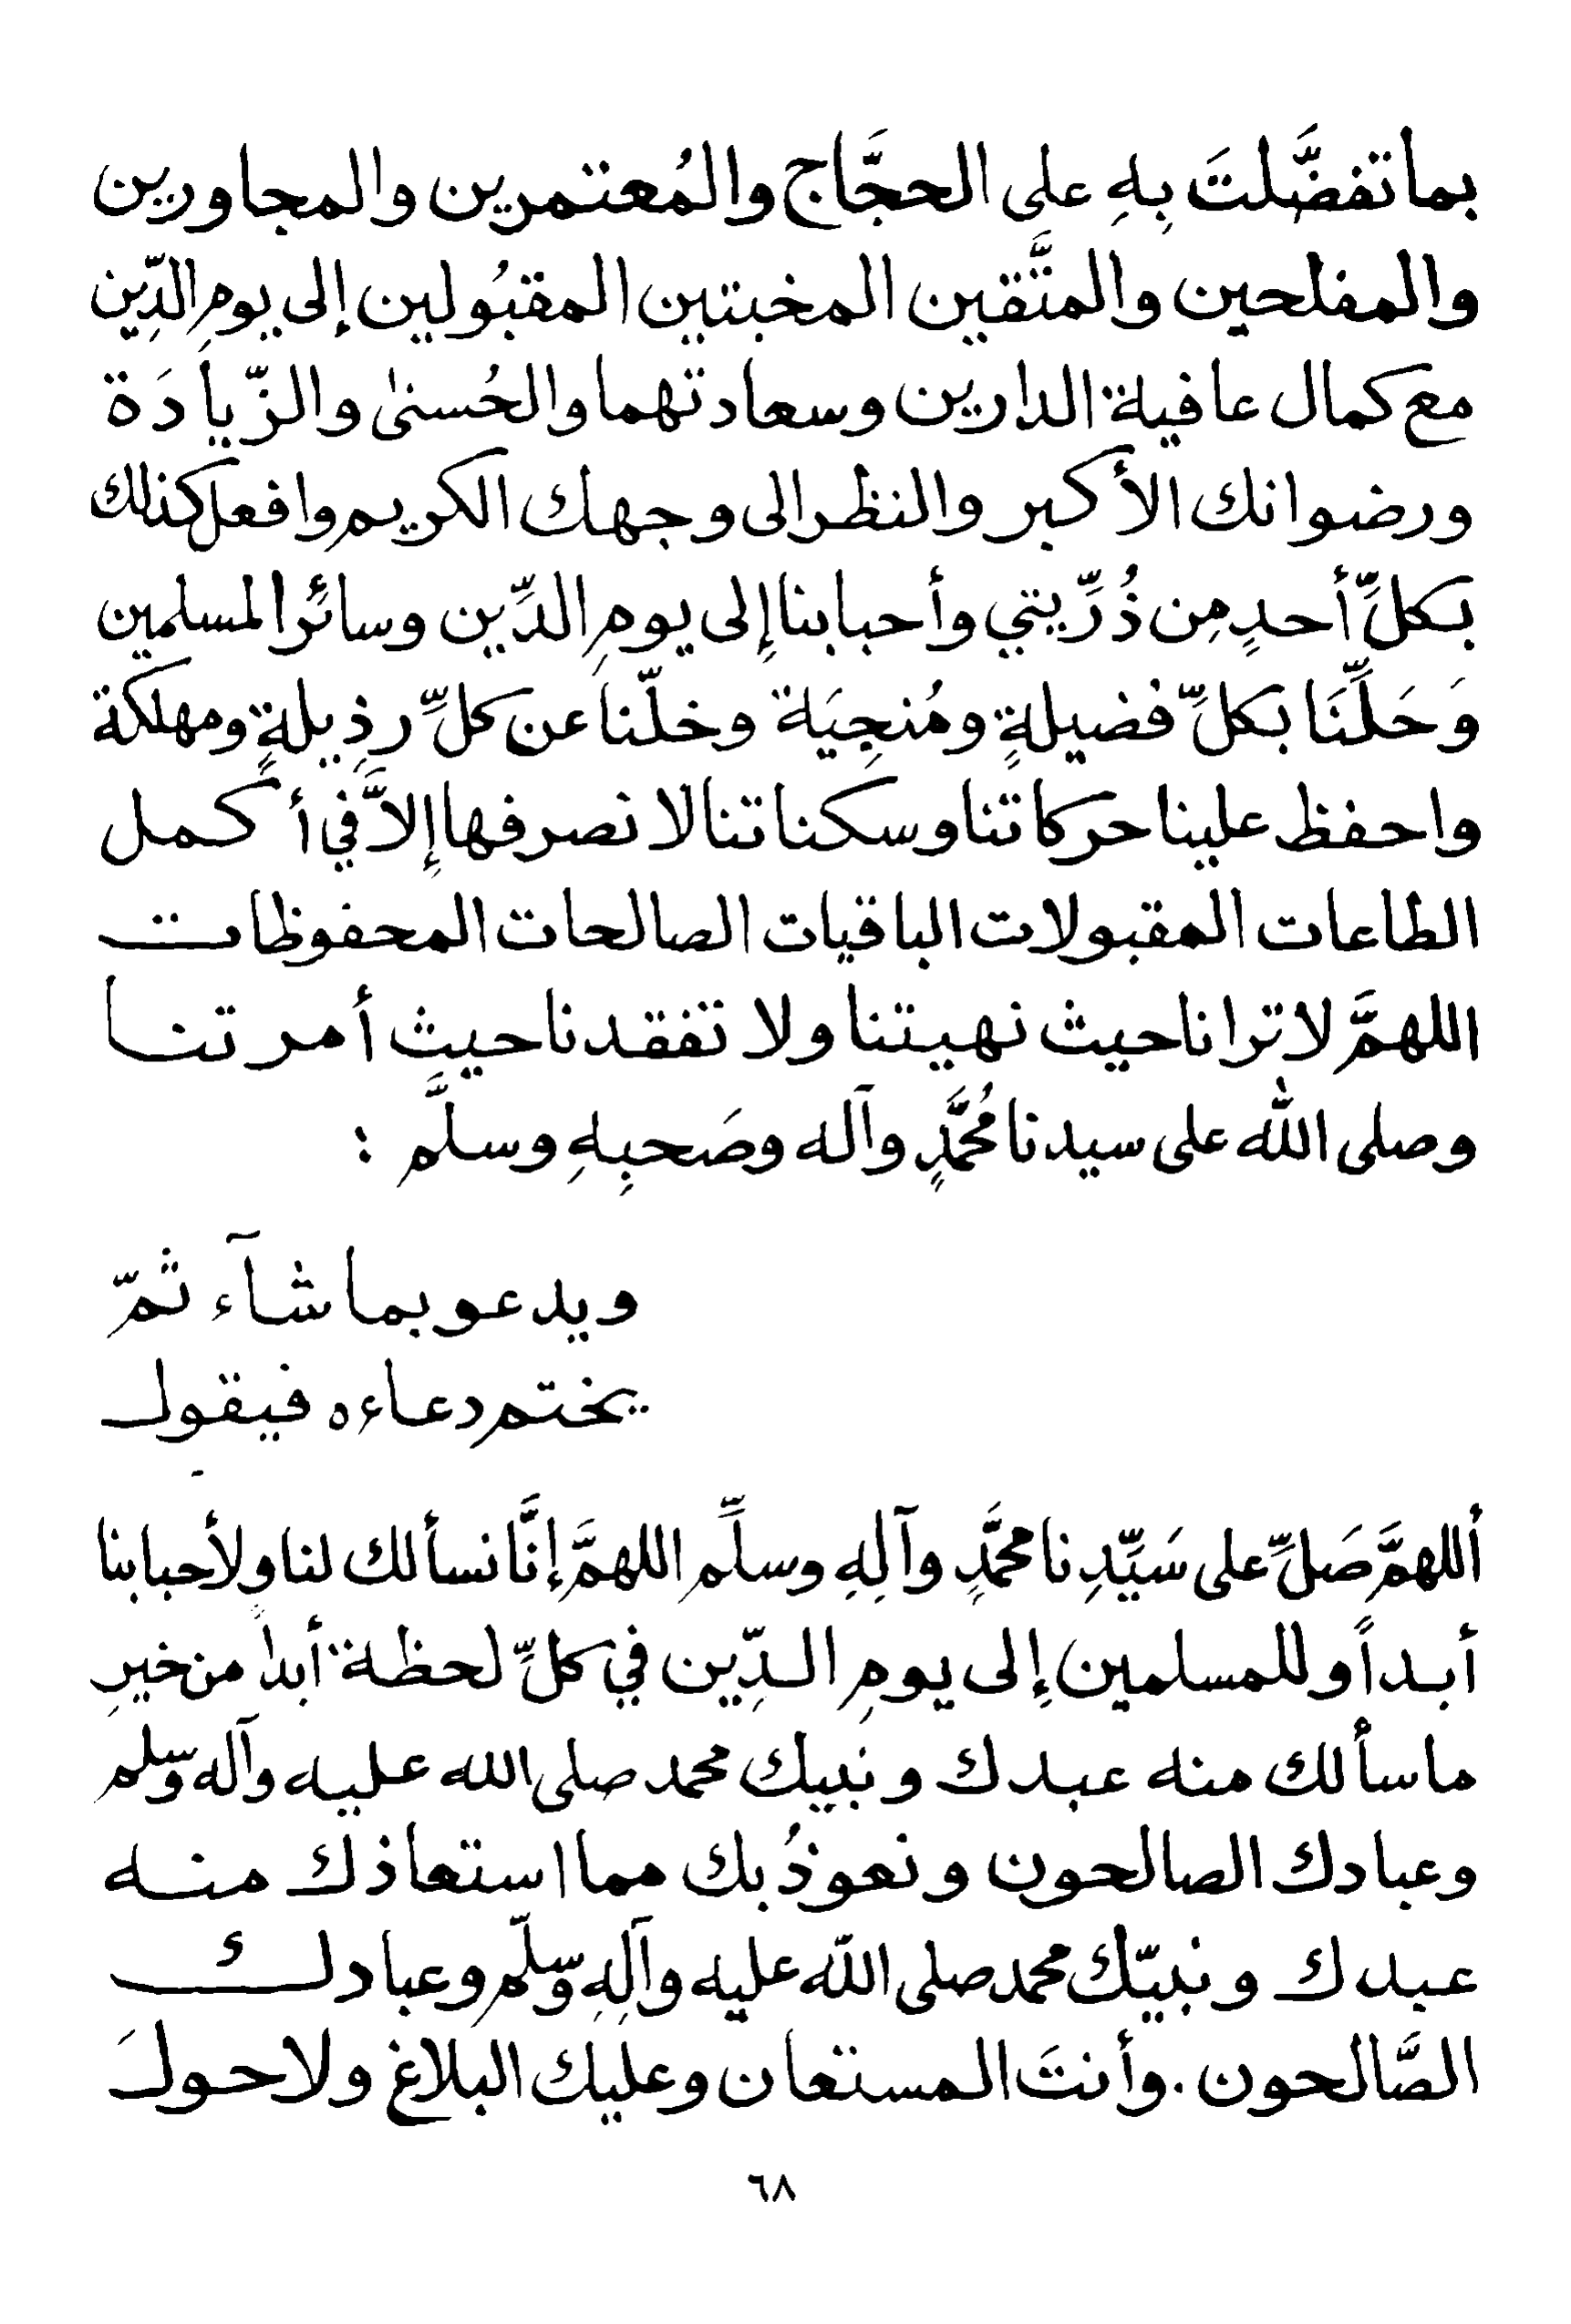 بما تفضَّلتَ بِهِ على الحجَّاج والمُعتمرين والمجاورين
والمفلحين والمتَّقين المخبتين المقبُولين إلى يومِ الدِّين
مع كمال عافية الدارين وسعادتهما والحُسنىٰ والزِّيادَة
ورضوانك الأكبر والنظر الى وجهك الكريم وافعل كذلك
بكلِّ أحدٍ مِن ذُرِّيتي وأحبابنا إِلى يومِ الدِّين وسائر المسلمين
وَحَلِّنَا بكلِّ فضيلةٍ ومُنجِيَة وخلّنا عن كلِّ رذِيلةٍ ومهلكة
واحفظ علينا حركاتنا وسكناتنا لا نصرفها إِلاَّ في أكمل
الطاعات المقبولات الباقيات الصالحات المحفوظات
اللهمَّ لا ترانا حيث نهيتنا ولا تفقدنا حيث أمرتنا
وصلى الله على سيدنا مُحمَّدٍ وآله وصَحبِهِ وسلَّم :
ويدعو بما شآء ثمّ
يختم دعاءه فيقول
أللهمَّ صَلِّ على سَيِّدِنا محمَّدٍ وآلِهِ وسلِّم اللهمَّ إنَّا نسألك لنا ولأحبابنا
أبداً وللمسلمين إِلى يومِ الدِّين في كلِّ لحظة أبداً من خيرِ
ما سألك منه عبدك ونبيك محمد صلى الله عليه وآله وسلم
وعبادك الصالحون ونعوذُ بك مما استعاذك منه
عبدك ونبيّك محمد صلى الله عليه وآلِهِ وسلّم وعبادك
الصَّالحون . وأنتَ المستعان وعليك البلاغ ولا حولَ
٦٨